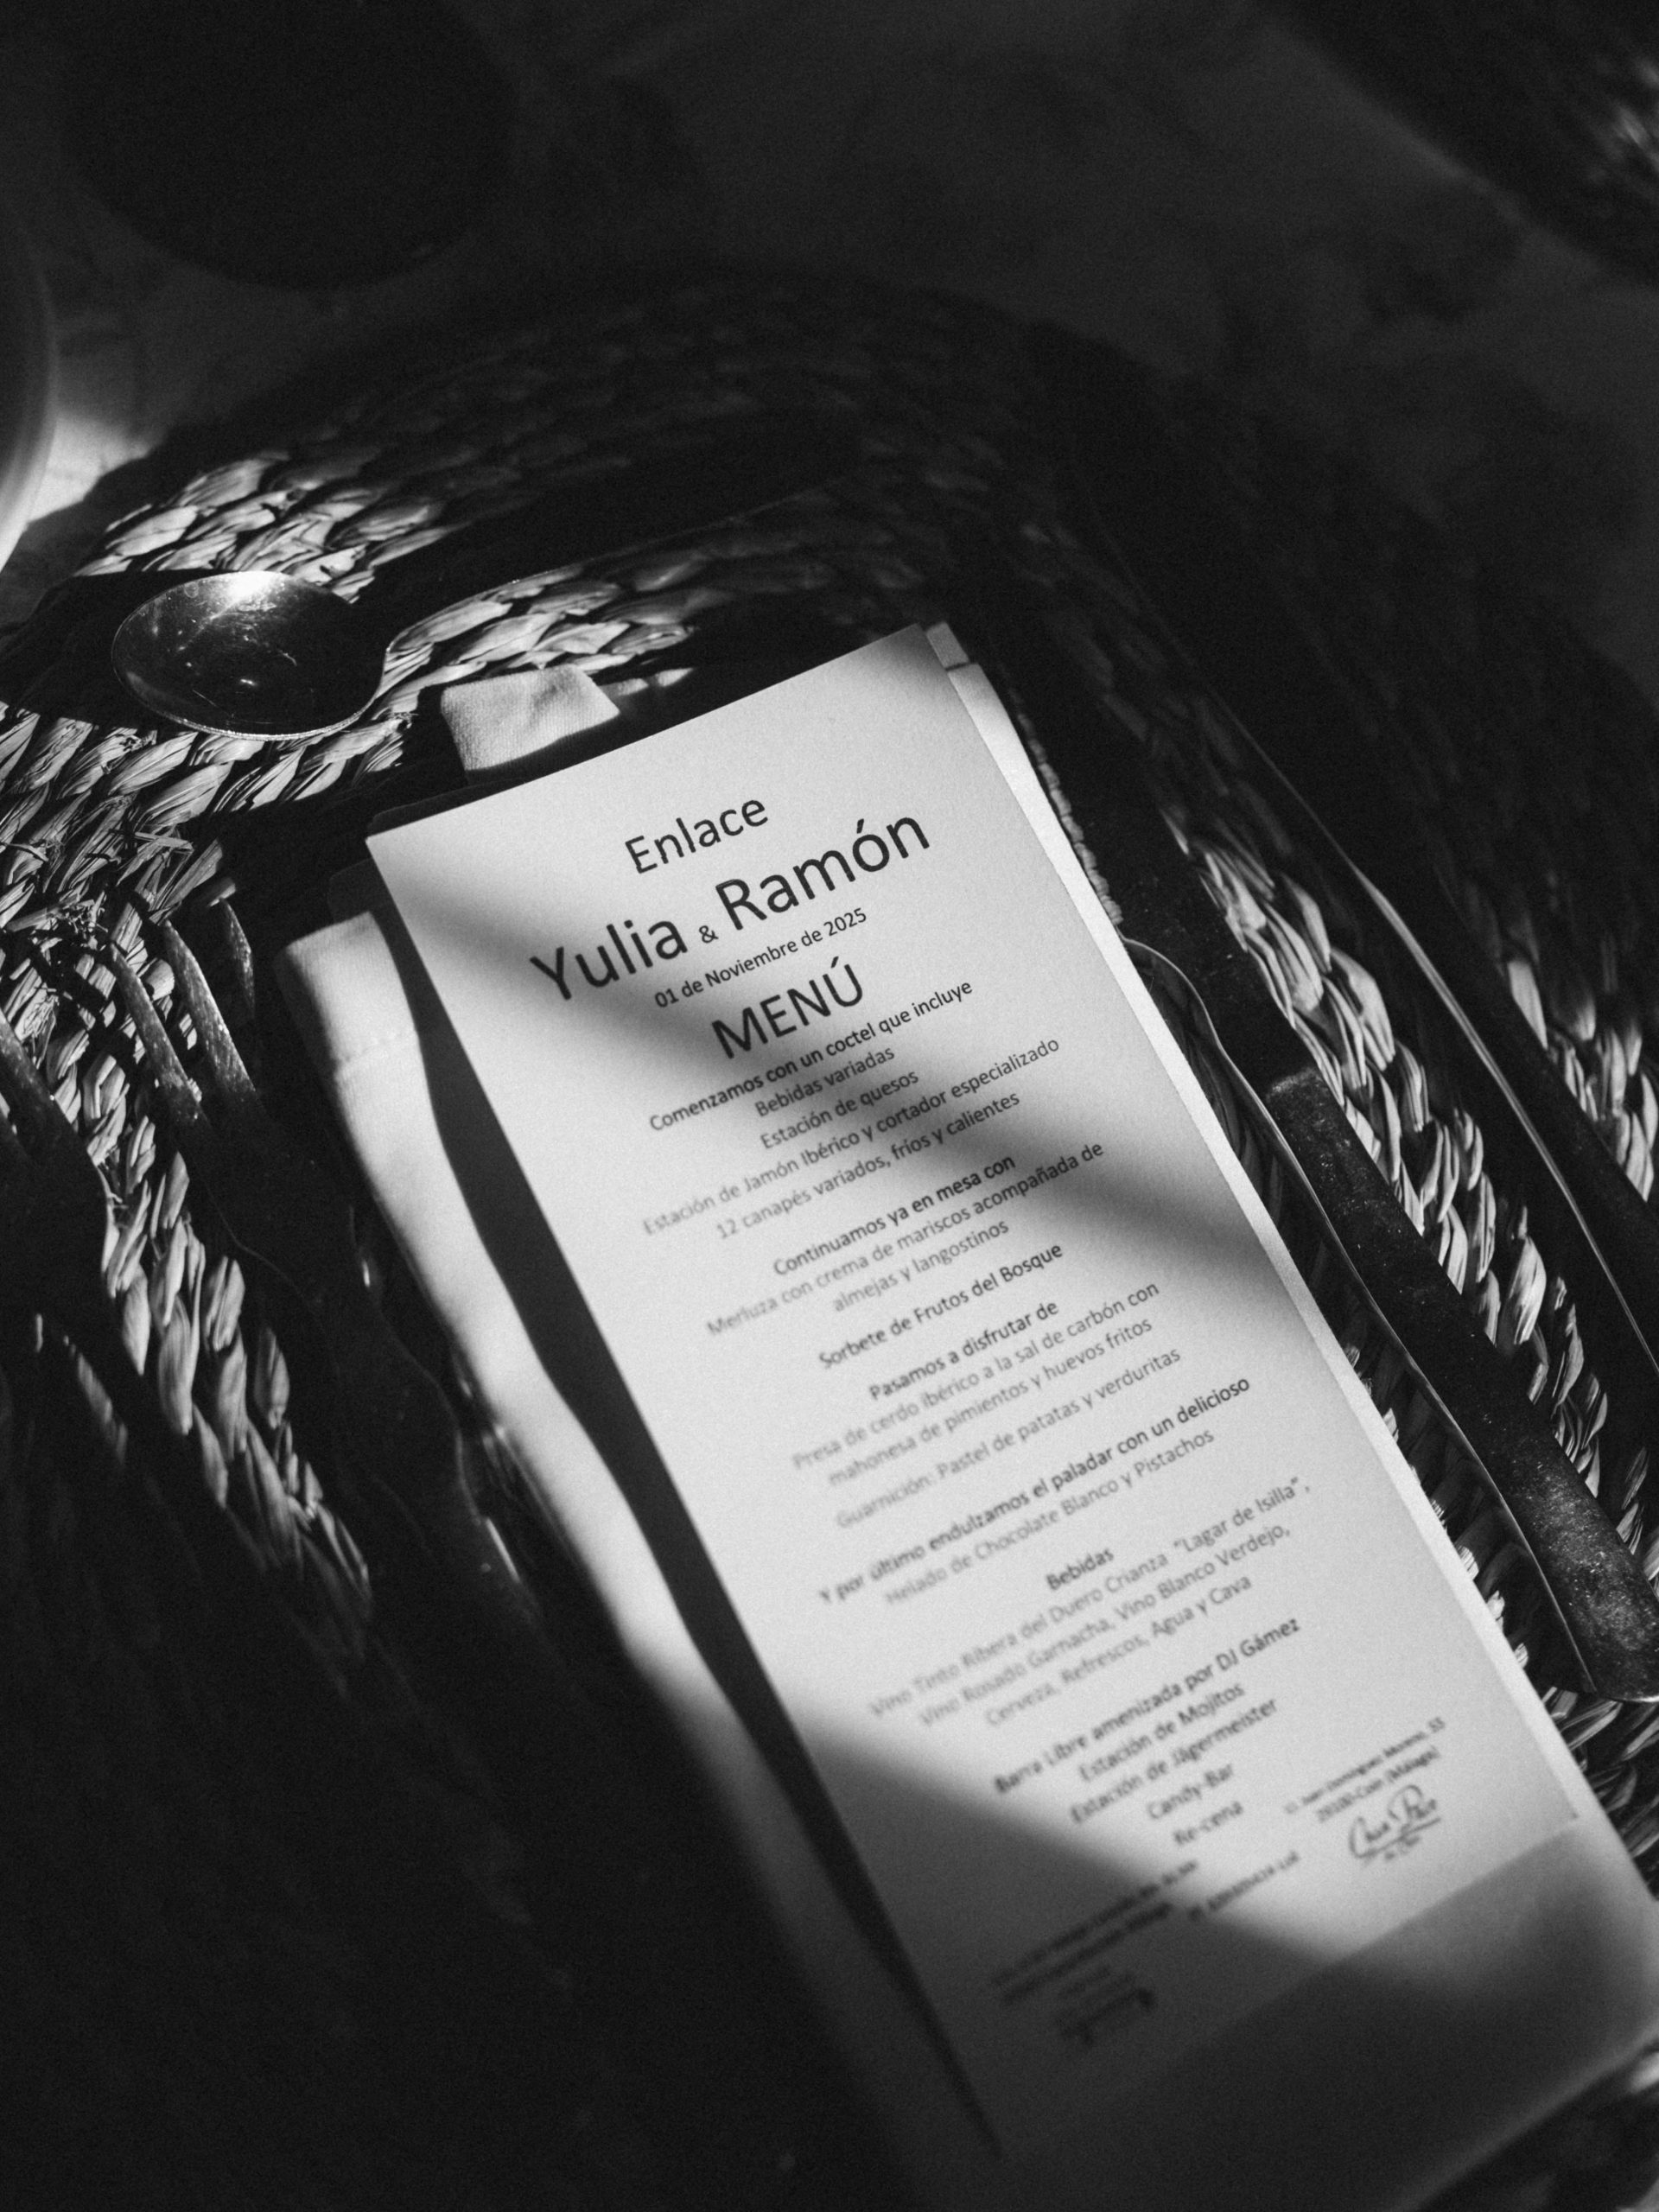 Enlace
Yulia & Ramón
01 de Noviembre de 2025
MENÚ
Comenzamos con un coctel que incluye
Bebidas variadas
Estación de quesos
Estación de Jamón Ibérico y cortador especializado
12 canapés variados, fríos y calientes
Continuamos ya en mesa con
Merluza con crema de mariscos acompañada de
almejas y langostinos
Sorbete de Frutos del Bosque
Pasamos a disfrutar de
Presa de cerdo ibérico a la sal de carbón con
mahonesa de pimientos y huevos fritos
Guarnición: Pastel de patatas y verduritas
Y por último endulzamos el paladar con un delicioso
Helado de Chocolate Blanco y Pistachos
Bebidas
Vino Tinto Ribera del Duero Crianza "Lagar de Isilla",
Vino Rosado Garnacha, Vino Blanco Verdejo,
Cerveza, Refrescos, Agua y Cava
Barra Libre amenizada por DJ Gámez
Estación de Mojitos
Estación de Jägermeister
Candy-Bar
Re-cena
29100-Coín (Málaga)